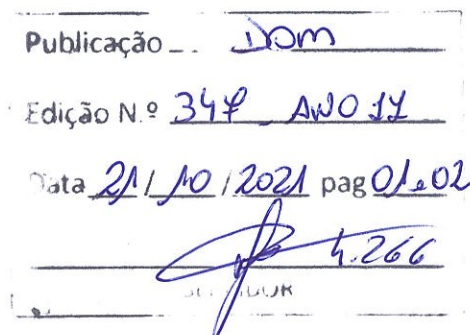 Publicação DOM
Edição N.º 347 ANO 11
Data 21/10/2021 pag 01e02
4.266